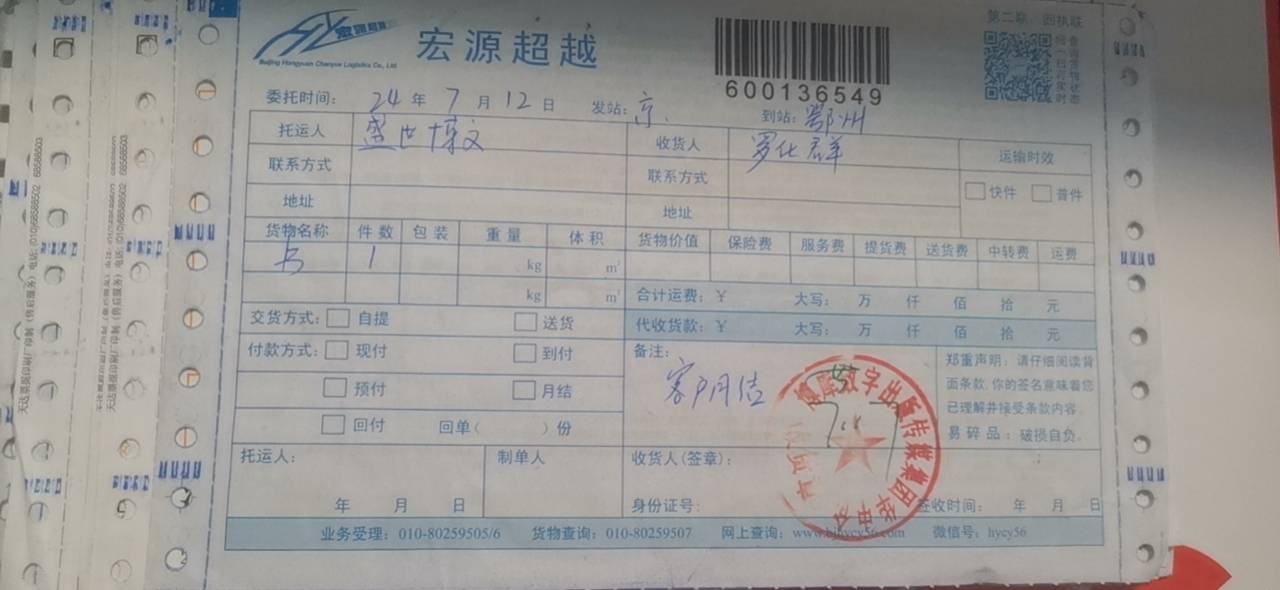 宏源超越
Beijing Hongyuan Chaoyue Logistics Co., Ltd
宏源超越
600136549
第二联：回执联
委托时间： 24 年 7 月 12 日 发站：京 到站：鄂州
托运人 盛世博文 收货人 罗化群 运输时效
联系方式 联系方式 快件 普件
地址 地址
货物名称 件数 包装 重量 体积 货物价值 保险费 服务费 提货费 送货费 中转费 运费
书 1 kg m³
kg m³ 合计运费：¥ 大写： 万 仟 佰 拾 元
交货方式： 自提 送货 代收货款：¥ 大写： 万 仟 佰 拾 元
付款方式： 现付 到付 备注： 郑重声明：请仔细阅读背
预付 月结 客户月结 面条款,你的签名意味着您
已理解并接受条款内容
回付 回单( )份 易碎品：破损自负。
托运人： 制单人 收货人(签章)：
年 月 日 身份证号： 签收时间： 年 月 日
业务受理：010-80259505/6 货物查询：010-80259507 网上查询：www.bjhycy56.com 微信号：hycy56
数字出版传媒集团华中
天达票据印刷厂印制（售后服务）电话：(010)68588502 68588503